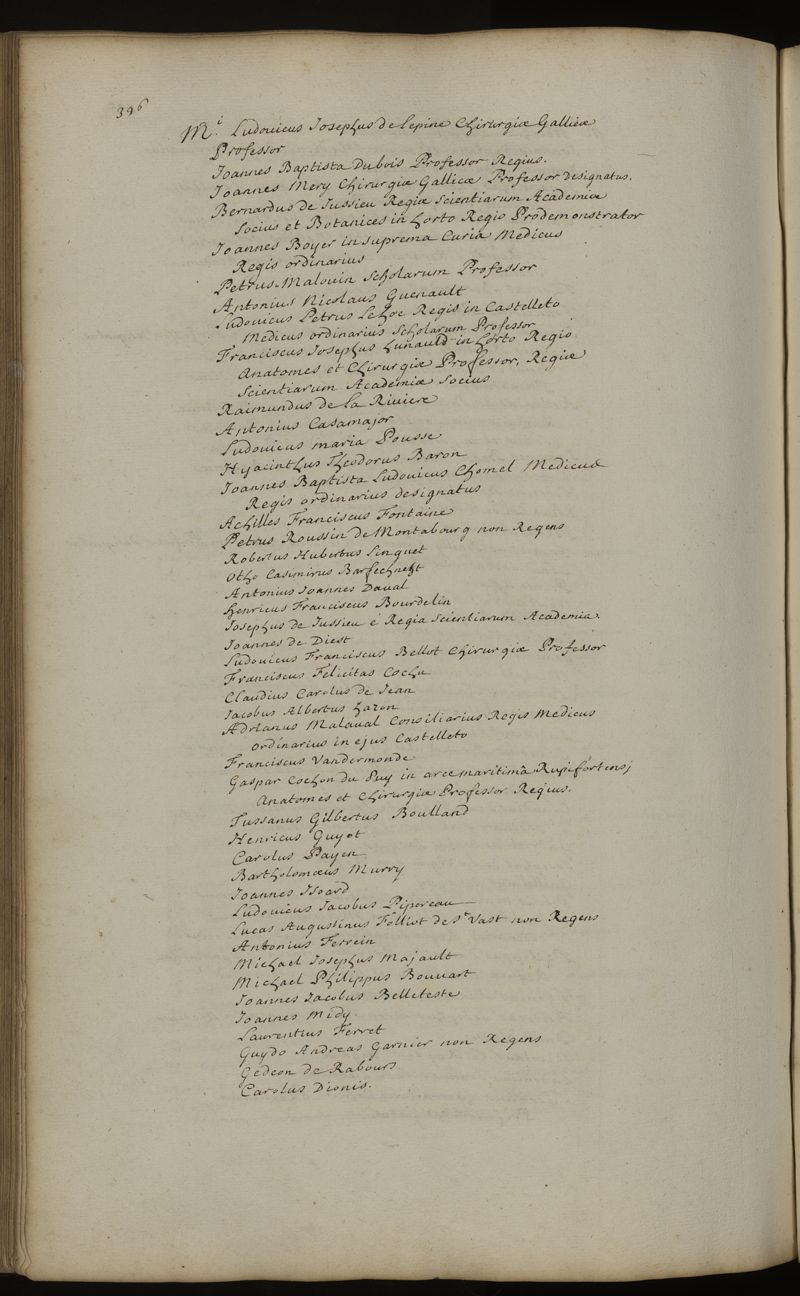 396
M.i Ludouicus Josephus de lepine Chirurgiæ Gallicæ
Professor
Joannes Baptista Dubois Professor Regius.
Joannes Mery Chirurgiæ Gallicæ Professor designatus.
Bernardus de Jussieu Regiæ Scientiarum Academiæ
Socius et Botanices in horto Regio Prodemonstrator
Joannes Boyer in suprema Curiâ Medicus
Regis ordinarius
Petrus Malouin Scholarum Professor
Antonius Nicolaus Guenault
Ludouicus Petrus Lehoc Regis in Castelleto
Medicus ordinarius Scholarum Professor
Franciscus Josephus hunauld in horto Regio
Anatomes et Chirurgiæ Professor, Regiæ
Scientiarum Academiæ Socius
Raimundus de la Riviere
Antonius Casamajor
Ludouicus maria Pousse
Hyacinthus Theodorus Baron
Joannes Baptista Ludouicus Chomel Medicus
Regis ordinarius designatus
Achilles Franciscus Fontaine
Petrus Roussin de Montabourg non Regens
Robertus Hubertus Linguet
Otho Casimirus Barfechneht
Antonius Joannes Daual
henricus Franciscus Bourdelin
Josephus de Jussieu é Regia Scientiarum Academia.
Joannes de Diest
Ludouicus Franciscus Bellot Chirurgiæ Professor
Franciscus Felicitas Cochu
Claudius Carolus de Jean
Jacobus Albertus hazon
Adrianus Malaual Consiliarius Regis Medicus
ordinarius in ejus Castelleto
Franciscus Vandermonde
Gaspar Cochon du Puy in arce maritimâ Rupifortensi
Anatomes et Chirurgiæ Professor Regius.
Tussanus Gilbertus Boulland
Henricus Guyot
Carolus Payen
Bartholomæus Murry
Joannes Isoard
Ludouicus Jacobus Pipereau
Lucas Augustinus Folliot de St Vast non Regens
Antonius Ferrein
Michael Josephus Majault
Michael Philippus Bouuart
Joannes Jacobus Belleteste
Joannes Midy.
Laurentius Ferret
Guydo Andreas Garnier non Regens
Gedeon de Rabours
Carolus Dionis.